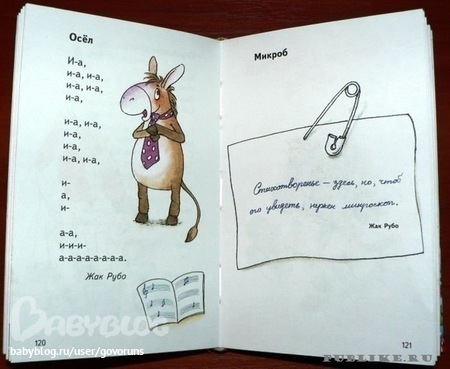 Осёл
И-а,
и-а, и-а,
и-а, и-а,
и-а,
и-а, и-а,
и-а,
и-а,
и-а, и-а,
и-
а,
и-
а-а,
и-и-и-
а-а-а-а-а-а-а-а.
Жак Рубо
120
Микроб
Стихотворенье – здесь, но, чтоб
его увидеть, нужен микроскоп.
Жак Рубо
121
BABYBLOG
babyblog.ru/user/govoruns
PUBLIKE.RU